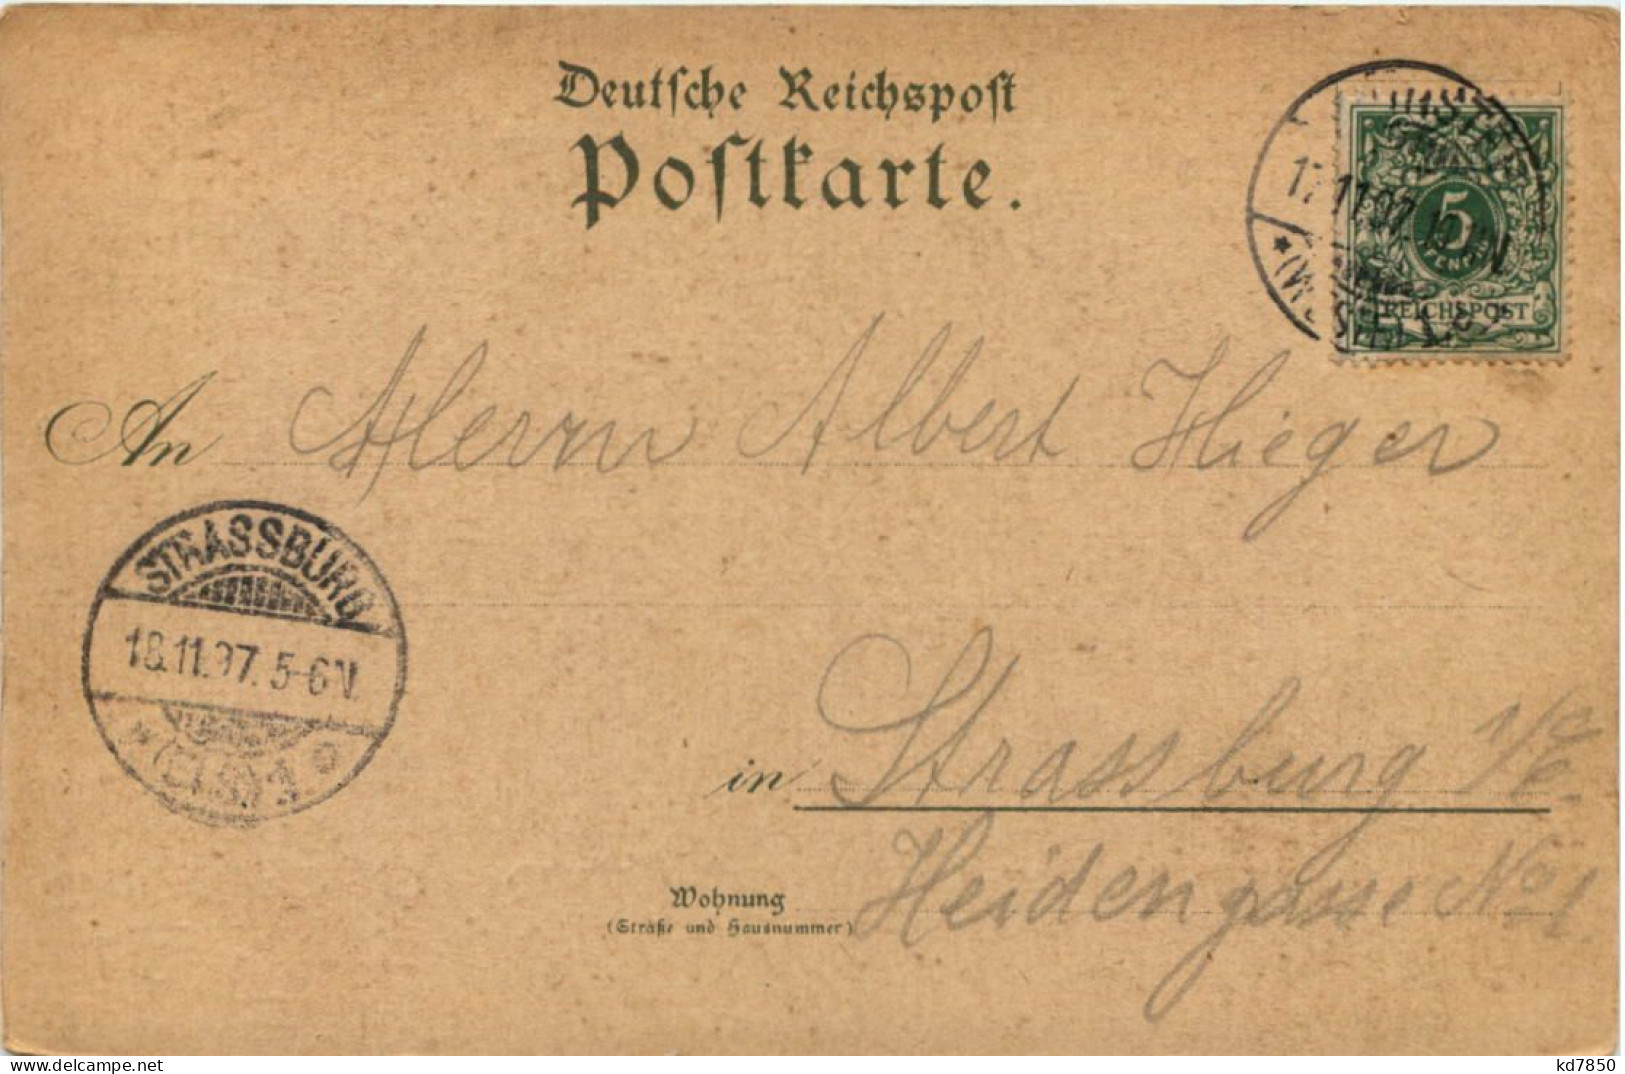 Deutsche Reichspost
Postkarte.
17.11.97.
5
REICHSPOST
An Herrn Albert Hieger
STRASSBURG
18.11.97. 5-6 V.
(ELS.) 1
in Strassburg i/E.
Wohnung
(Straße und Hausnummer)
Heidengasse No 1.
www.delcampe.net
kd7850